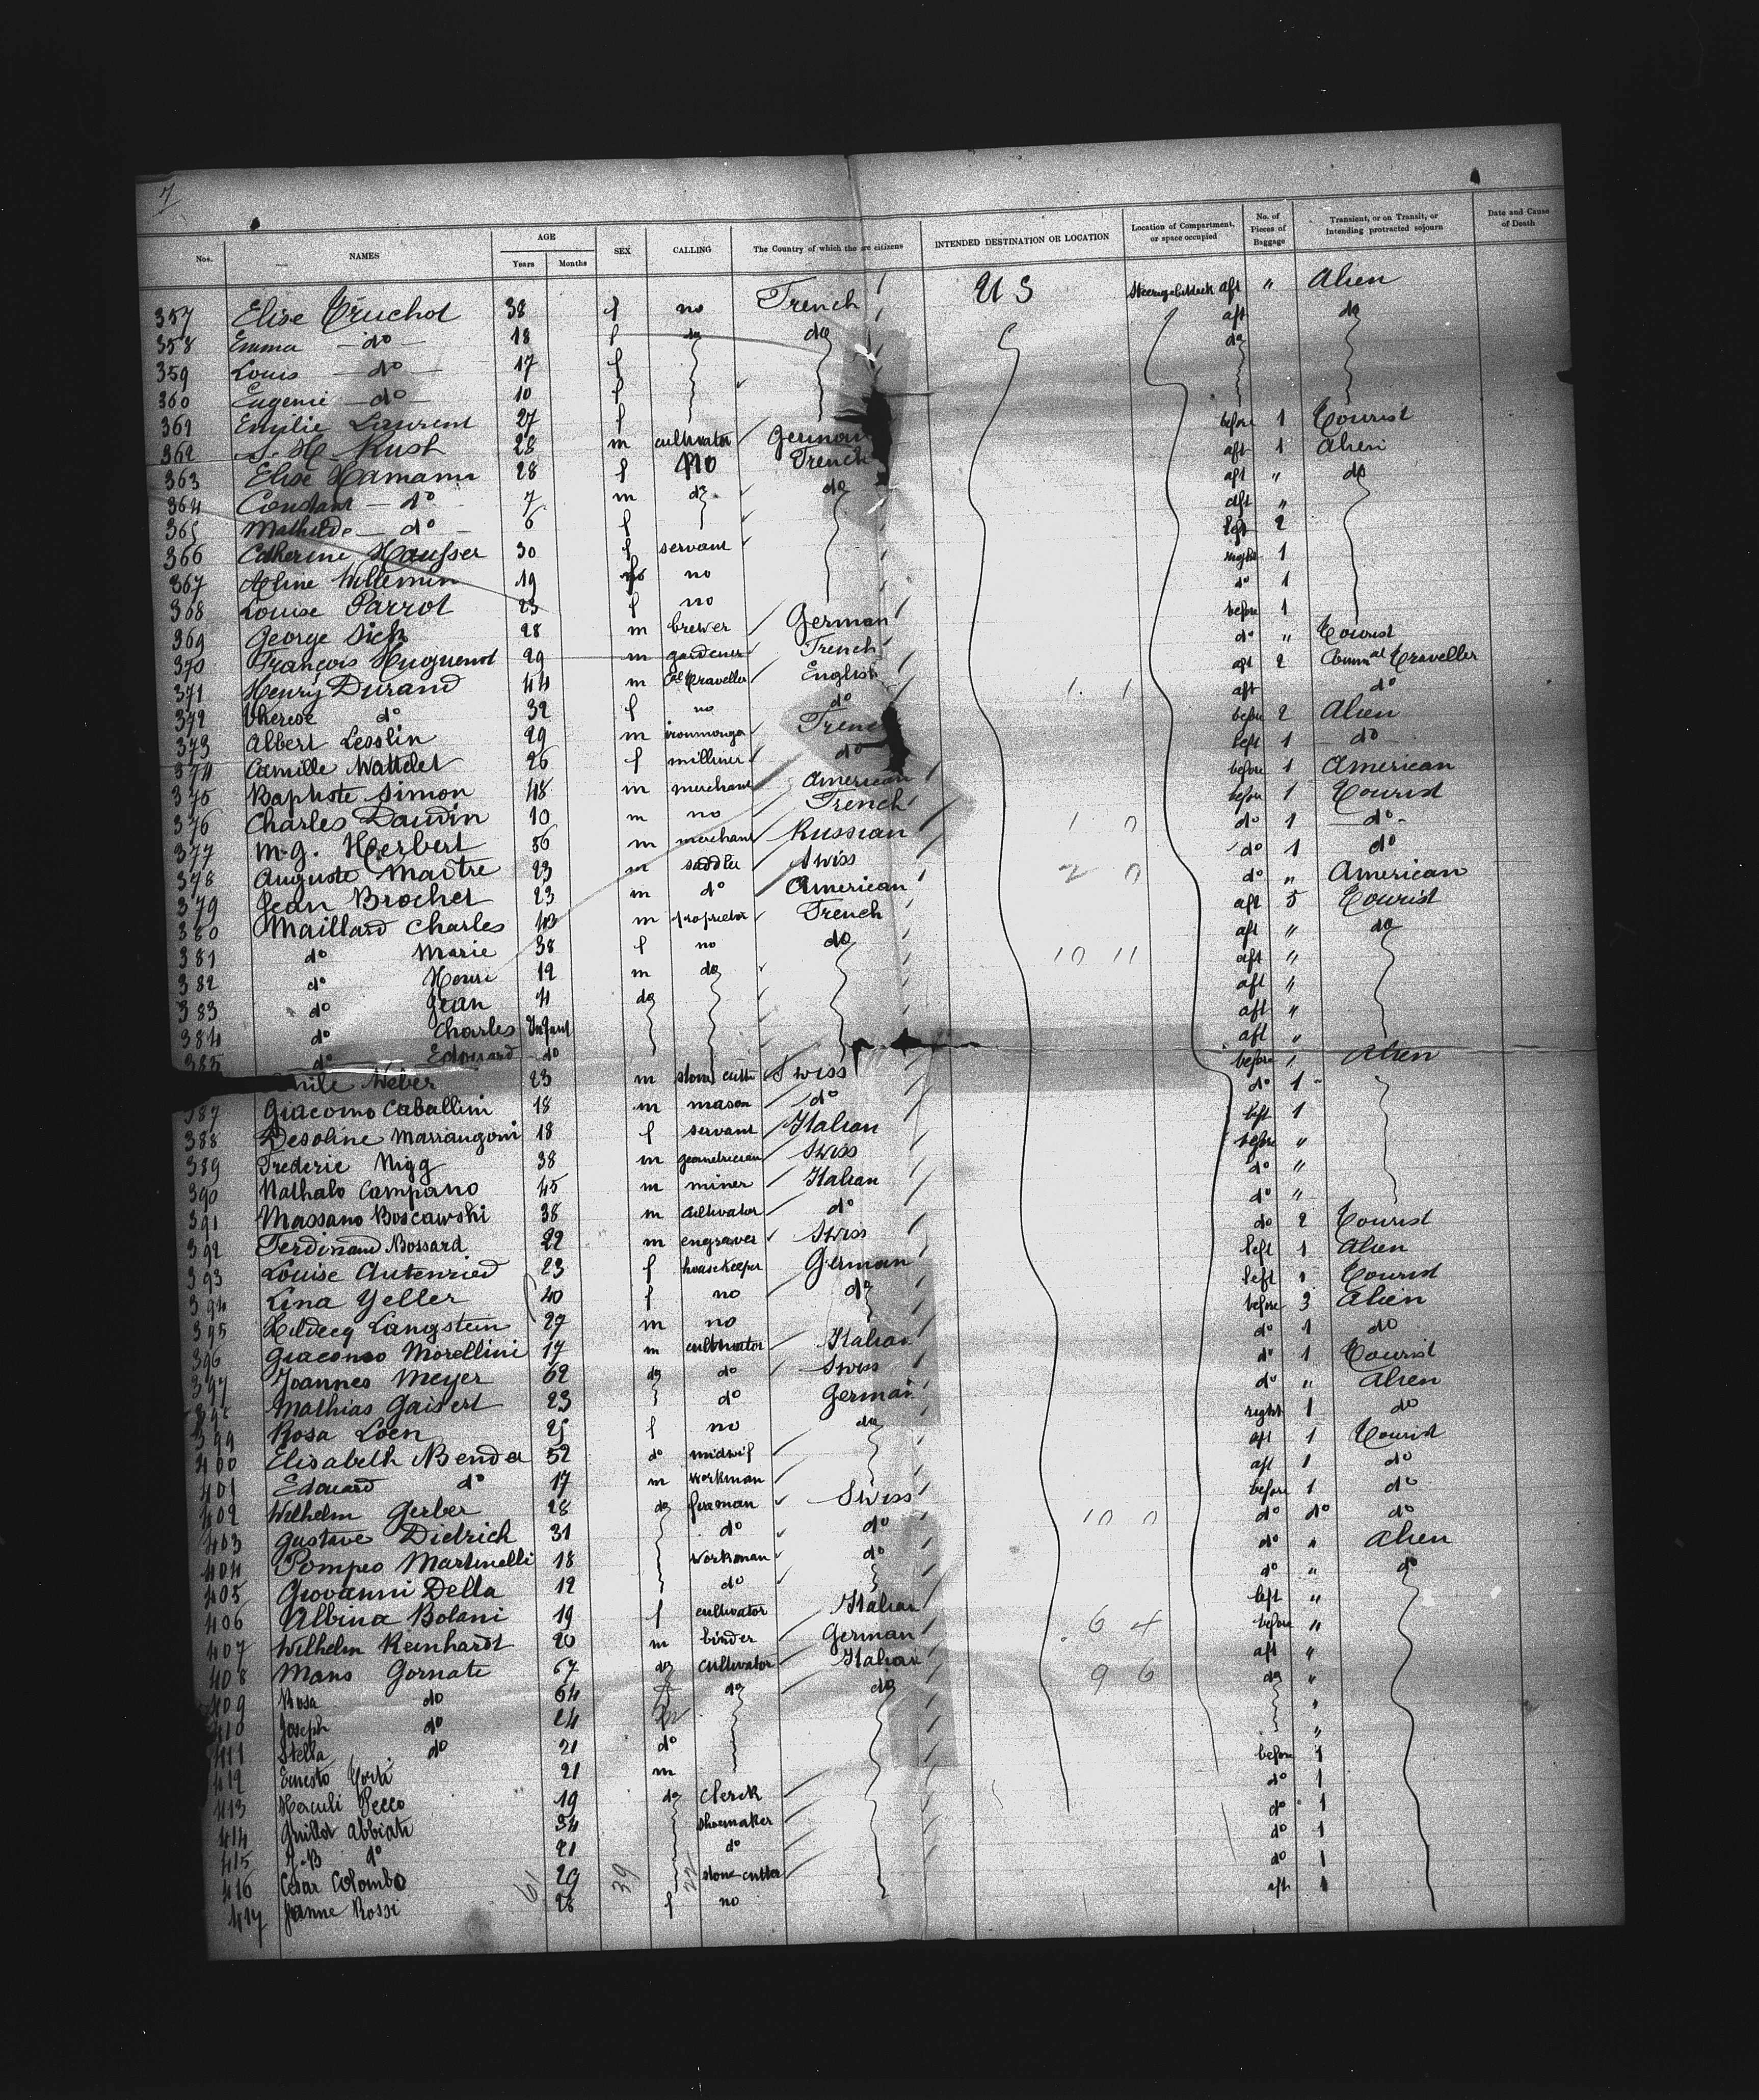 7
Nos. NAMES AGE Years Months SEX CALLING The Country of which the are citizens INTENDED DESTINATION OR LOCATION Location of Compartment, or space occupied No. of Pieces of Baggage Transient, or on Transit, or Intending protracted sojourn Date and Cause of Death
357 Elise Cruchot 38 f no French U S aft " Alien
358 Emma do 18 f do do aft do
359 Louis do 17 f do
360 Eugenie do 10 f
361 Emilie Laurent 27 f
362 Rush 28 m cultivator German before 1 Tourist
363 Elise Hamann 28 f no French aft 1 Alien
364 Constant do 7 m do do aft " do
365 Mathilde do 6 f aft "
366 Catherine Hausser 30 f servant left 2
367 Willemin 19 no right 1
368 Louise Parrot 23 f no do 1
369 George Sich 28 m brewer German before 1
370 François Huguenot 29 m gardener French do " Tourist
371 Henry Durand 44 m Traveller English aft 2 Traveller
372 Therese do 32 f no do aft do
373 Albert Lesslin 29 m French before 2 Alien
374 Camille Wattelet 26 f milliner do left 1 do
375 Baptiste Simon 48 m merchant American before 1 American
376 Charles Daudin 10 m no French before 1 Tourist
377 M. G. Herbert 56 m merchant Russian do 1 do
378 Auguste Maitre 23 m saddler Swiss do 1 do
379 Jean Brochet 23 m do American do " American
380 Maillard Charles 43 m proprietor French aft 5 Tourist
381 do Marie 38 f no do aft " do
382 do Henri 12 m do aft "
383 do Jean 4 do aft "
384 do Charles Infant aft "
385 do Edouard do aft "
Weber 23 m stone cutter Swiss before Alien
387 Giacomo Caballini 18 m mason do do 1
388 Desoline Marriangoni 18 f servant Italian left 1
389 Frederic Nigg 38 m geometrician Swiss before "
390 Nathalo Campano 45 m miner Italian do "
391 Massano Boscawski 38 m cultivator do do "
392 Ferdinand Bossard 22 m engraver Swiss do 2 Tourist
393 Louise Autenried 23 f housekeeper German left 1 Alien
394 Lina Yeller 40 f no do left Tourist
395 Langstein 27 m no before 3 Alien
396 Giacomo Morellini 17 m cultivator Italian do 1 do
397 Joannes Meyer 62 do do Swiss do 1 Tourist
398 Mathias Gaisert 23 do German do " Alien
399 Rosa Loen 25 f no do right 1 do
400 Elisabeth Bender 52 do midwif aft 1 Tourist
401 Edouard do 17 m workman aft 1 do
402 Wilhelm Gerber 28 do Swiss before 1 do
403 Gustave Dietrich 31 do do do do do
404 Pompeo Martinelli 18 workman do do " Alien
405 Giovanni Della 12 do do " do
406 Albina Bolani 19 f cultivator Italian left "
407 Wilhelm Reinhardt 20 m binder German before "
408 Mans Gornate 67 do cultivator Italian aft "
409 Rosa do 64 do do do "
410 Joseph do 24 "
411 Stella do 21 do "
412 Ernesto 21 m before 1
413 Secco 19 do Clerck do 1
414 Abbiati 34 shoemaker do 1
415 do 21 do do 1
416 Cesar Colombo 29 stone-cutter do 1
417 Jeanne Rossi 28 f no aft 1
61 39 22